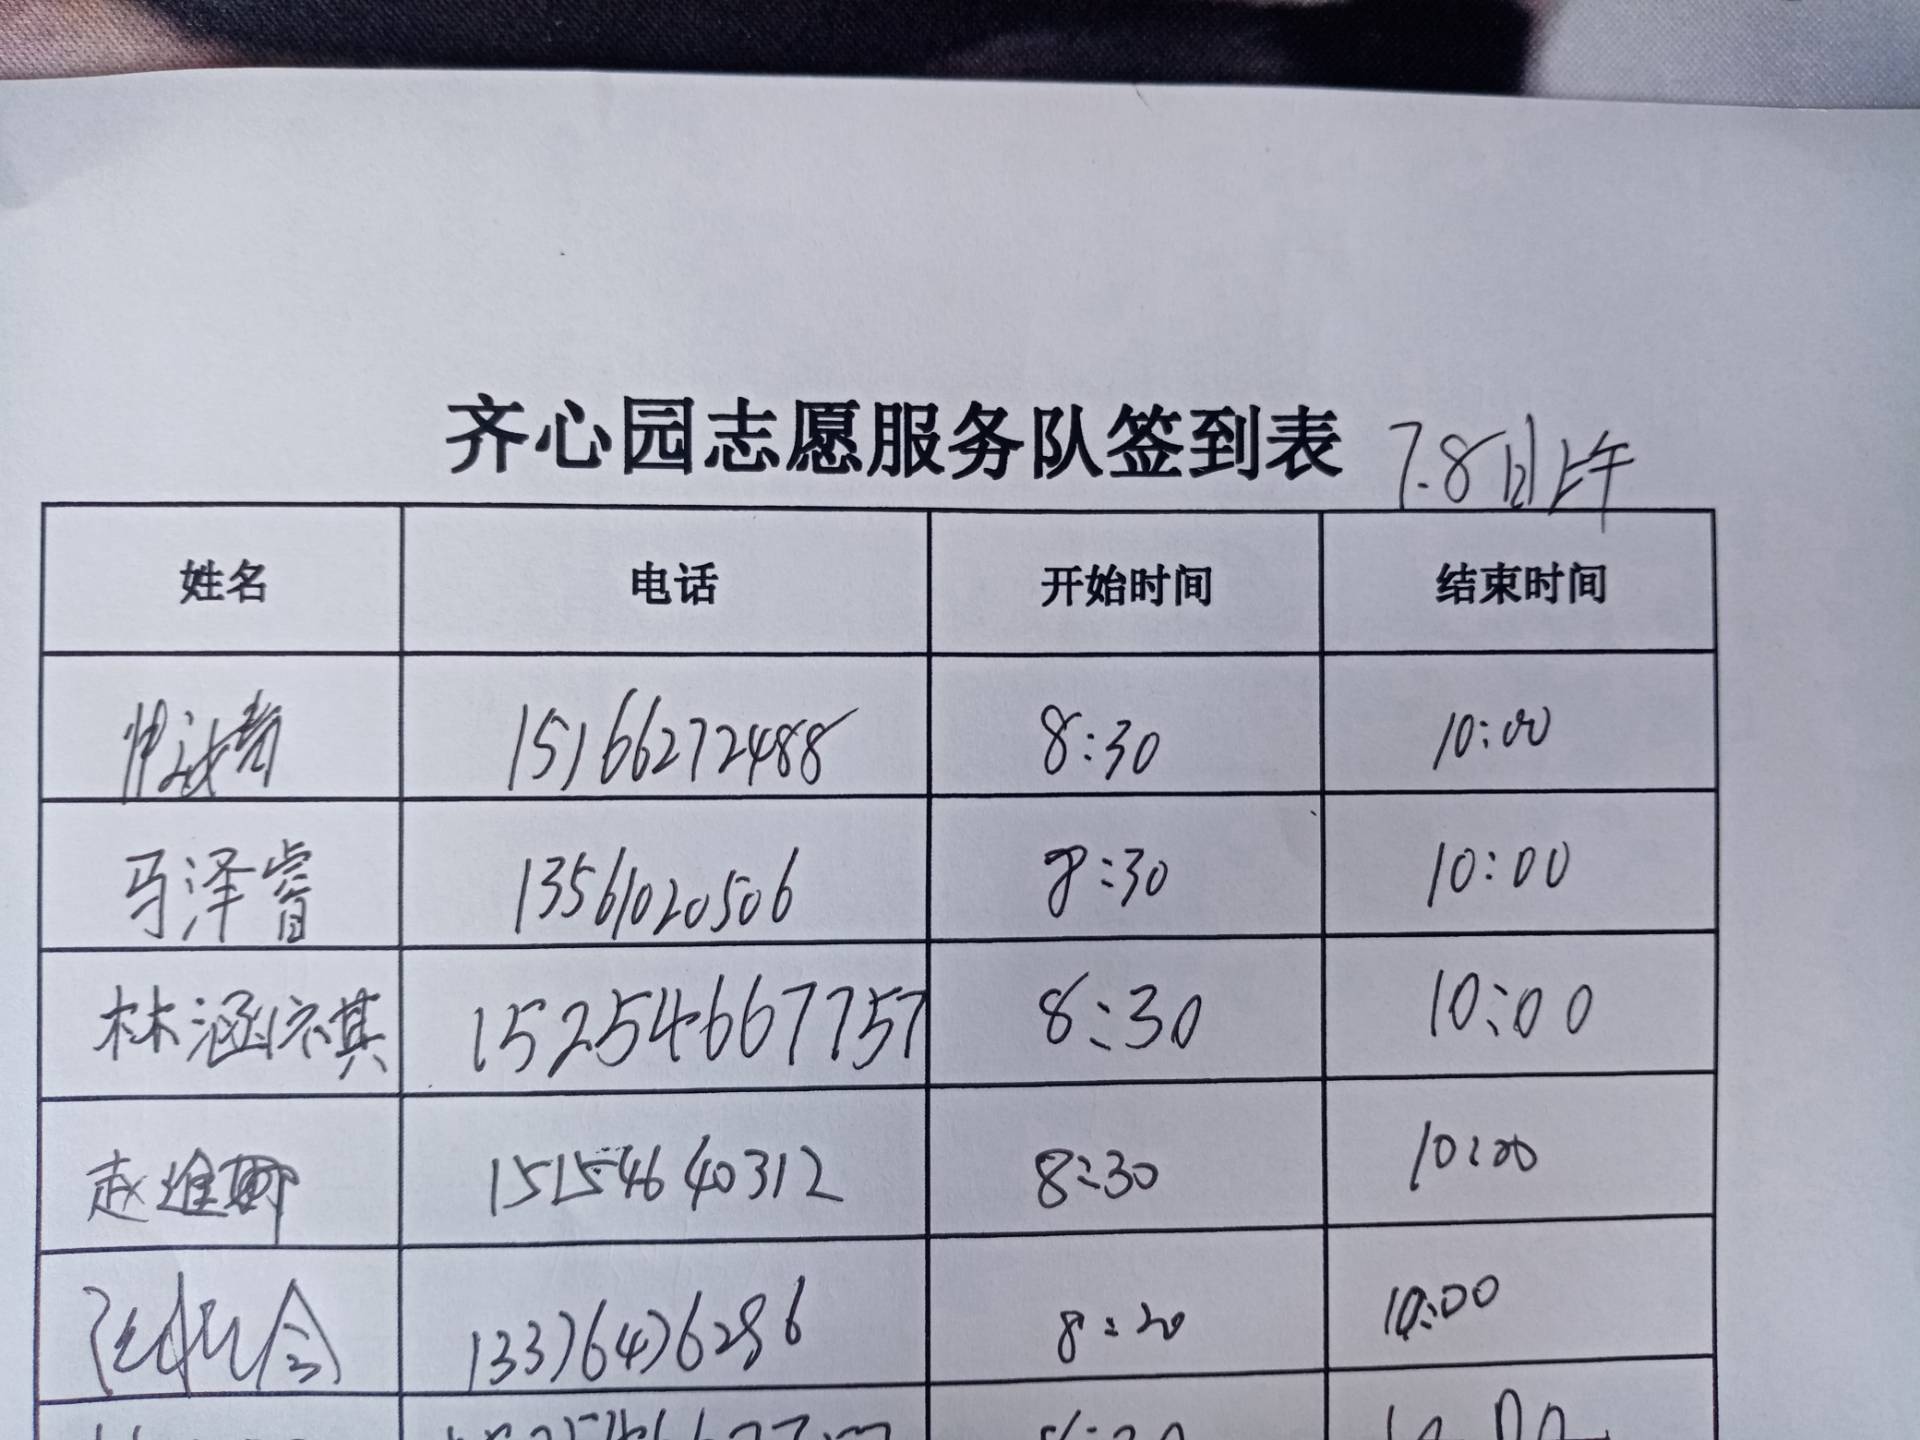 齐心园志愿服务队签到表 7.8日上午
姓名 电话 开始时间 结束时间
15166272488 8:30 10:00
马泽睿 13561020506 8:30 10:00
林涵祺 15254667757 8:30 10:00
赵 15154640312 8:30 10:00
13376476286 8:20 10:00